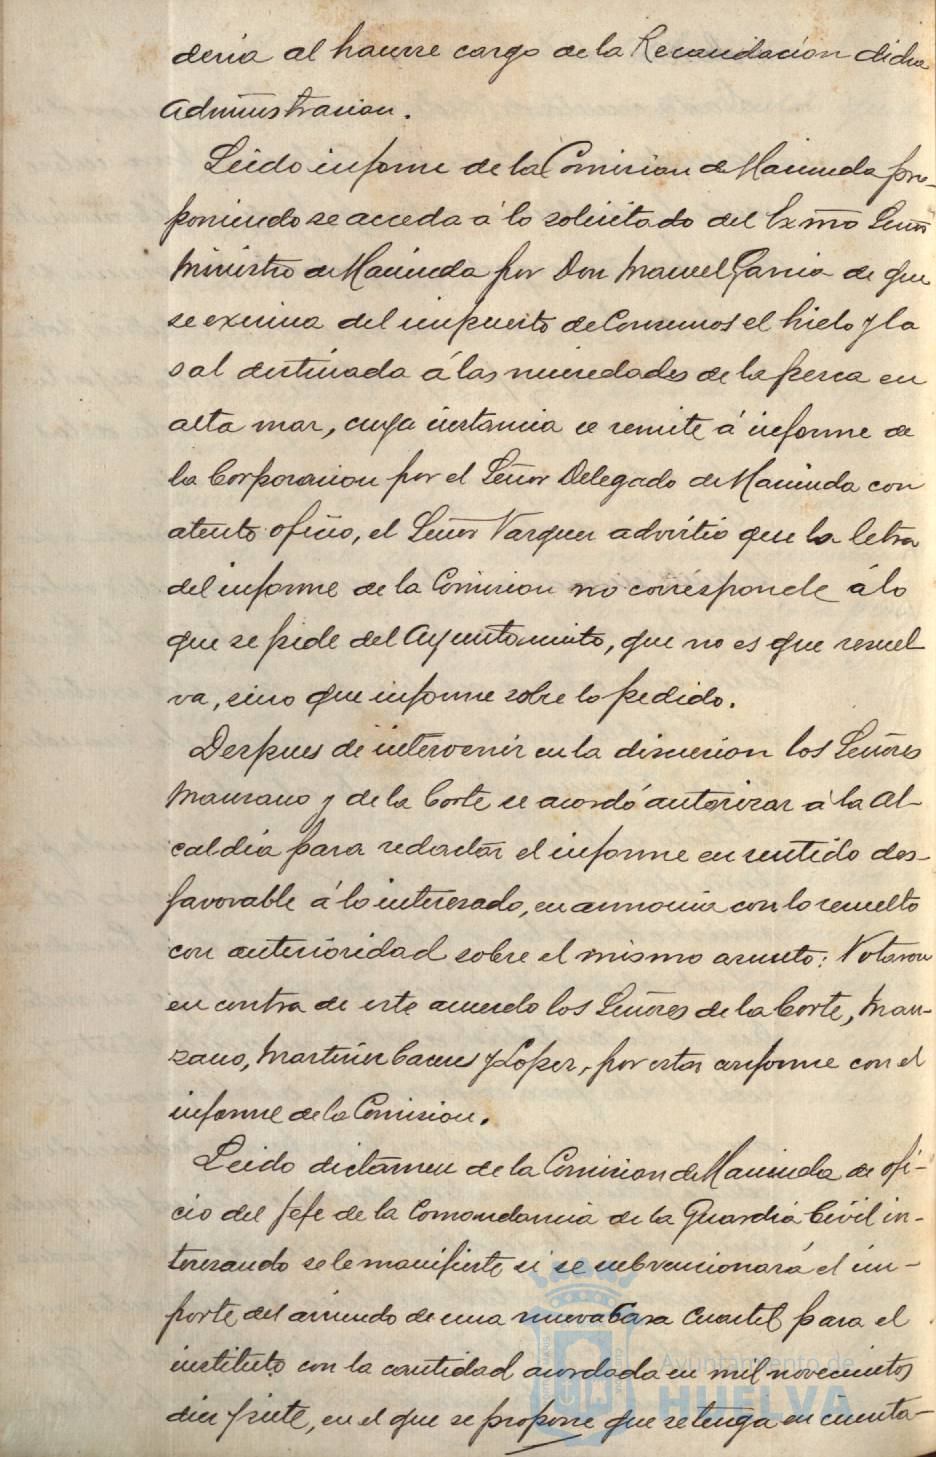 deria al hacerse cargo de la Recaudacion dicha
Administracion.
Leido informe de la Comision de Hacienda pro-
poniendo se acceda á lo solicitado del Exmo Señor
Ministro de Hacienda por Don Manuel Garcia de que
se exima del impuesto de Consumos el hielo y la
sal destinada á las necesidades de la pesca en
alta mar, cuya instancia se remite á informe de
la Corporacion por el Señor Delegado de Hacienda con
atento oficio, el Señor Vazquez advirtió que la letra
del informe de la Comision no corresponde á lo
que se pide del Ayuntamiento, que no es que resuel
va, sino que informe sobre lo pedido.
Despues de intervenir en la discusion los Señores
Manzano y de la Corte se acordó autorizar á la Al-
caldia para redactar el informe en sentido des-
favorable á lo interesado, en armonia con lo resuelto
con anterioridad sobre el mismo asunto: Votaron
en contra de este acuerdo los Señores de la Corte, Man-
zano, Martinez y Lopez, por estar conforme con el
informe de la Comision.
Leido dictamen de la Comision de Hacienda de ofi-
cio del Jefe de la Comandancia de la Guardia Civil in-
teresando se le manifieste si se subvencionará el im-
porte del arriendo de una nueva Casa Cuartel para el
instituto con la cantidad acordada en mil novecientos
diez y siete, en el que se propone que se tenga en cuenta-
Ayuntamiento de
HUELVA